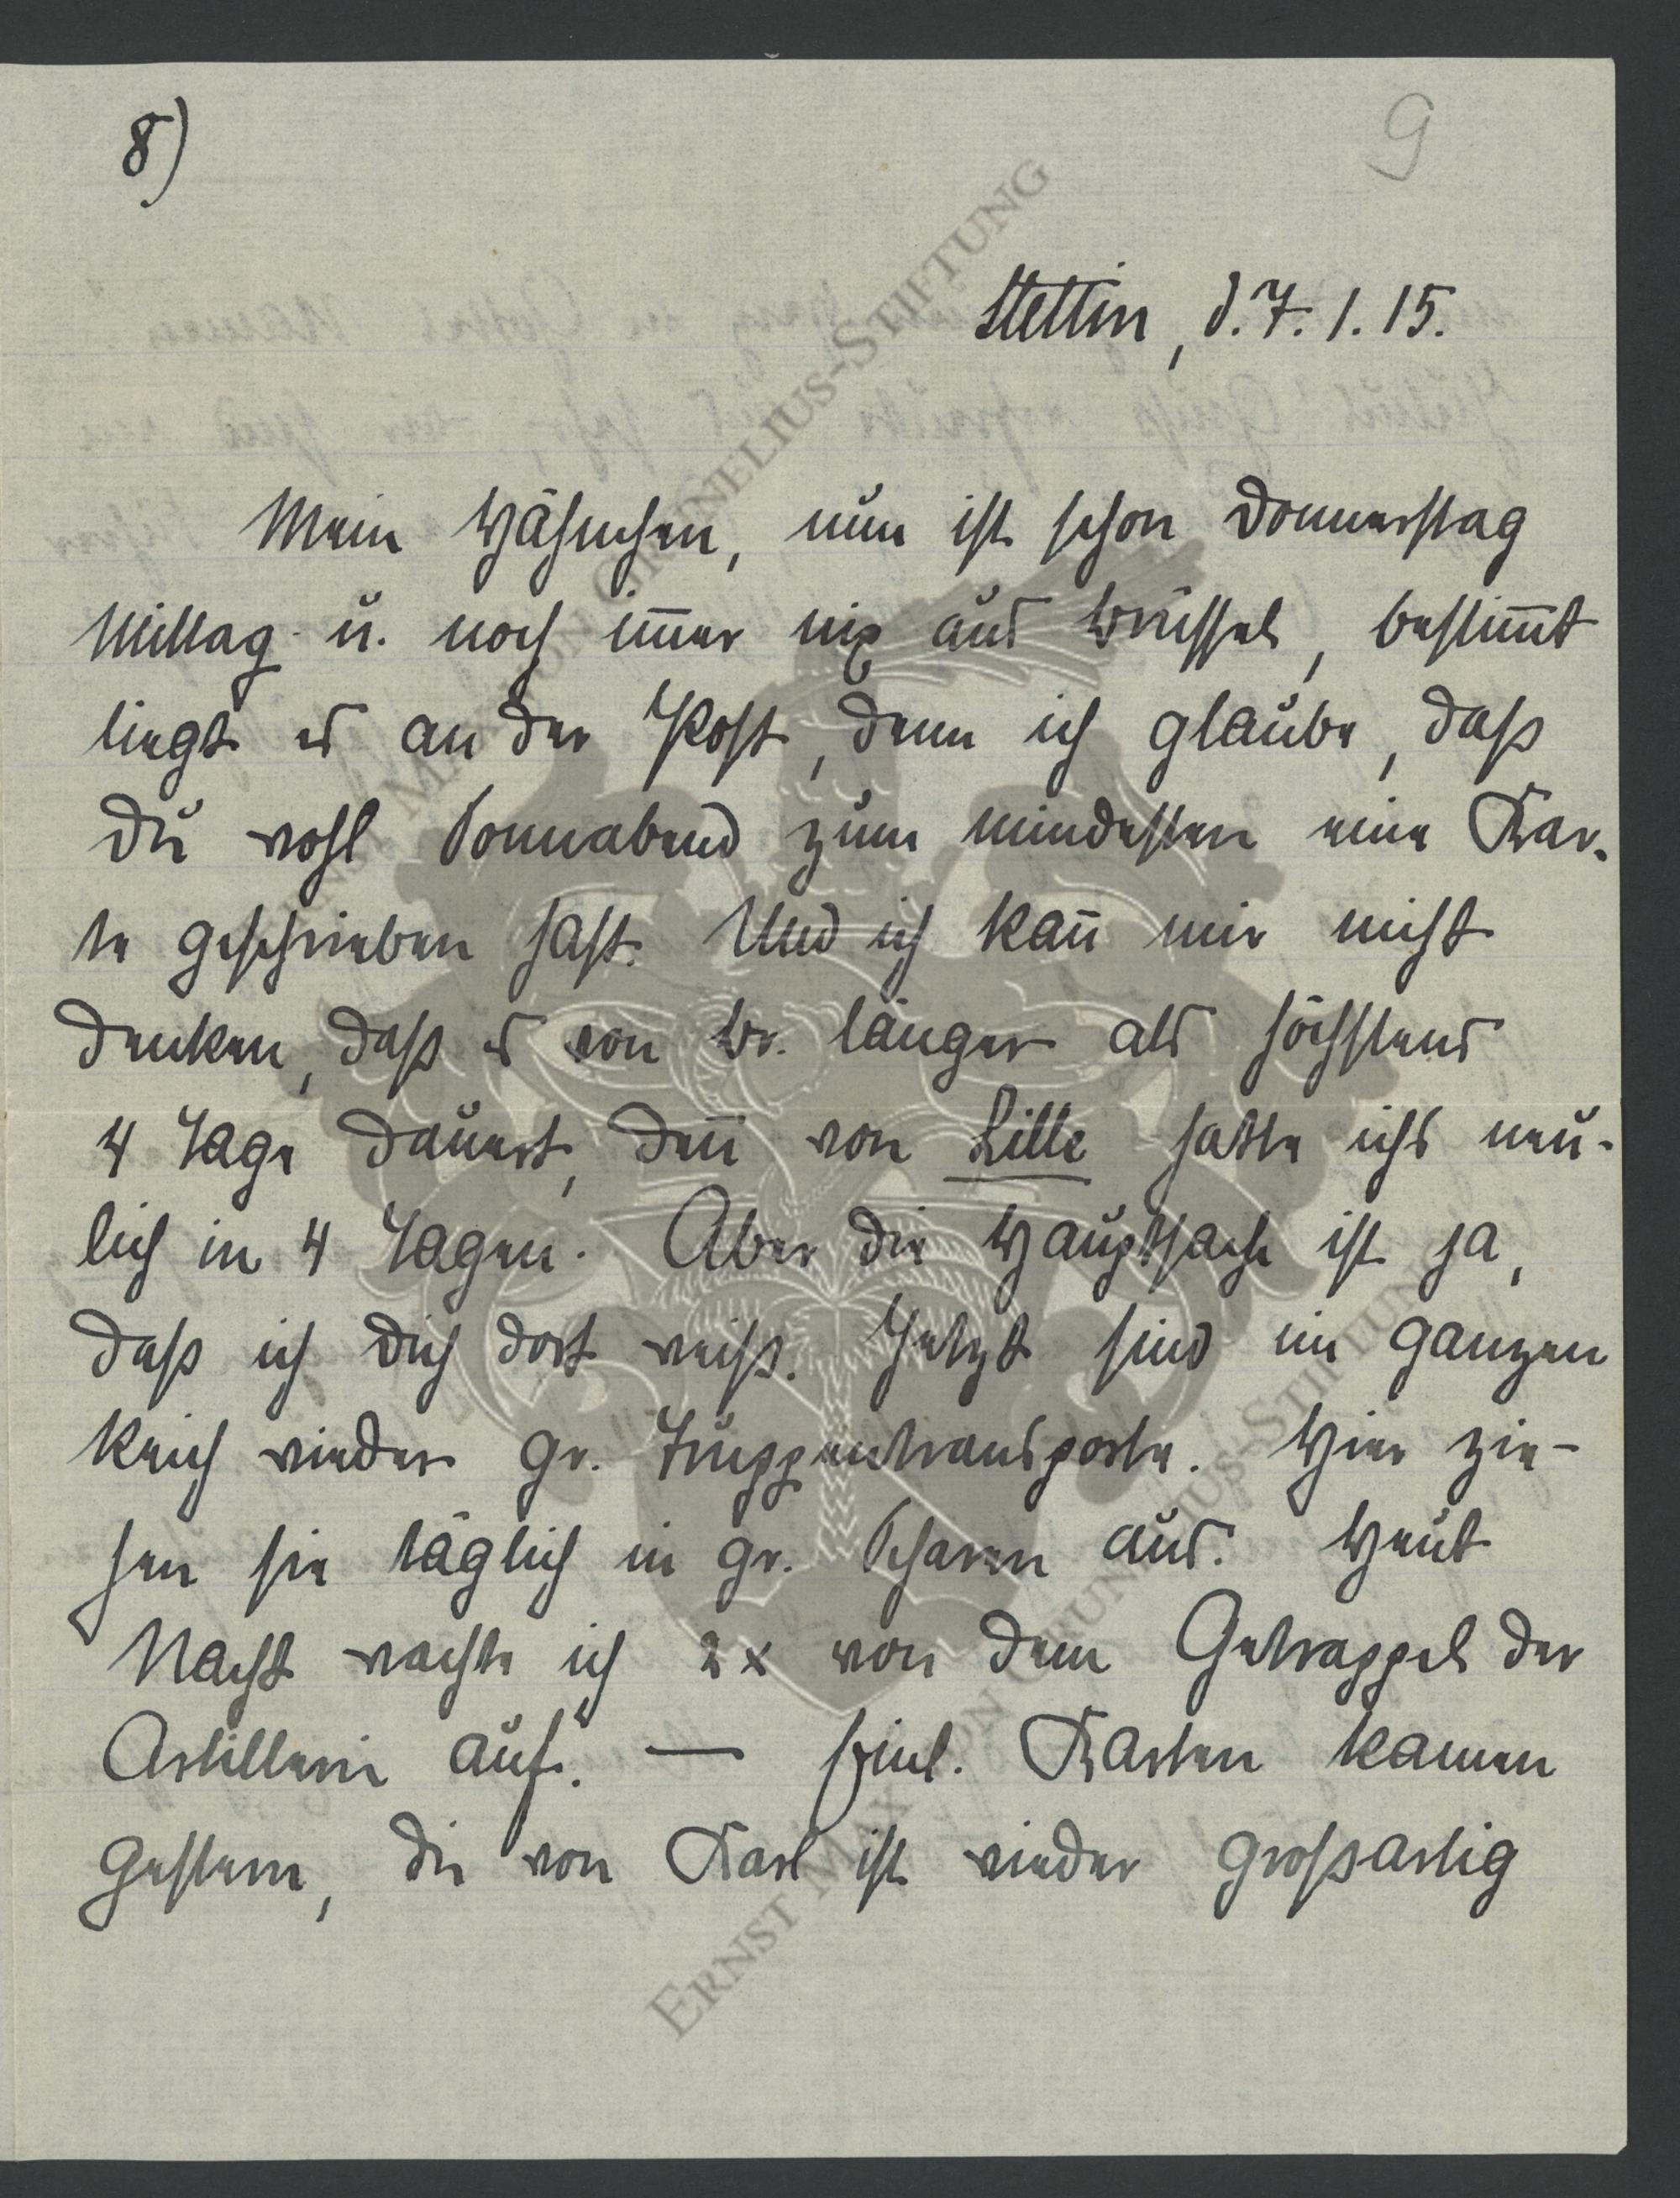 8)
9
Stettin, d. 7. 1. 15.
Mein Hähnchen, nun ist schon Donnerstag
Mittag u. noch im̅er nix aus Brüssel, bestim̅t
liegt es an der Post, denn ich glaube, daß
Du wohl Sonnabend zum mindesten eine Kar-
te geschrieben hast. Und ich kan̅ mir nicht
denken, daß es von Br. länger als höchstens
4 Tage dauert, den̅ von Lille hatte ichs neu-
lich in 4 Tagen. Aber die Hauptsache ist ja,
daß ich Dich dort weiß. Jetzt sind im ganzen
Reich wieder gr. Truppentransporte. Hier zie-
hen sie täglich in gr. Scharen aus. Heut
Nacht wachte ich 2x von dem Getrappel der
Artillerie auf. — Karten kamen
gestern, die von Karl ist wieder großartig
ERNST MAX VON GRUNELIUS-STIFTUNG
ERNST MAX VON GRUNELIUS-STIFTUNG